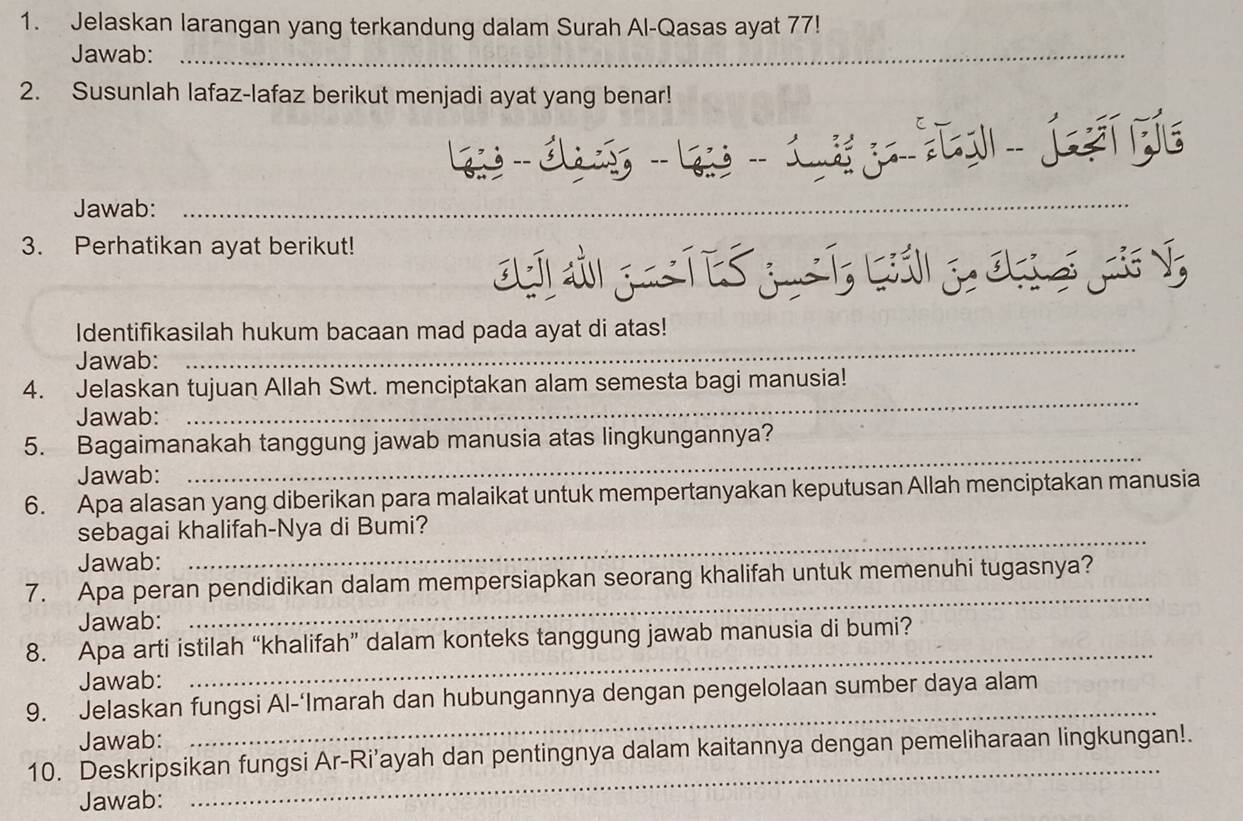 1. Jelaskan larangan yang terkandung dalam Surah Al-Qasas ayat 77!
Jawab:
2. Susunlah lafaz-lafaz berikut menjadi ayat yang benar!
قَالُوْٓا اَتَجْعَلُ -- الدِّمَاۤءَۚ -- مَنْ يُّفْسِدُ -- فِيْهَا -- وَيَسْفِكُ -- فِيْهَا
Jawab:
3. Perhatikan ayat berikut!
وَلَا تَنْسَ نَصِيْبَكَ مِنَ الدُّنْيَا وَاَحْسِنْ كَمَآ اَحْسَنَ اللّٰهُ اِلَيْكَ
Identifikasilah hukum bacaan mad pada ayat di atas!
Jawab:
4. Jelaskan tujuan Allah Swt. menciptakan alam semesta bagi manusia!
Jawab:
5. Bagaimanakah tanggung jawab manusia atas lingkungannya?
Jawab:
6. Apa alasan yang diberikan para malaikat untuk mempertanyakan keputusan Allah menciptakan manusia
sebagai khalifah-Nya di Bumi?
Jawab:
7. Apa peran pendidikan dalam mempersiapkan seorang khalifah untuk memenuhi tugasnya?
Jawab:
8. Apa arti istilah “khalifah” dalam konteks tanggung jawab manusia di bumi?
Jawab:
9. Jelaskan fungsi Al-‘Imarah dan hubungannya dengan pengelolaan sumber daya alam
Jawab:
10. Deskripsikan fungsi Ar-Ri’ayah dan pentingnya dalam kaitannya dengan pemeliharaan lingkungan!.
Jawab: